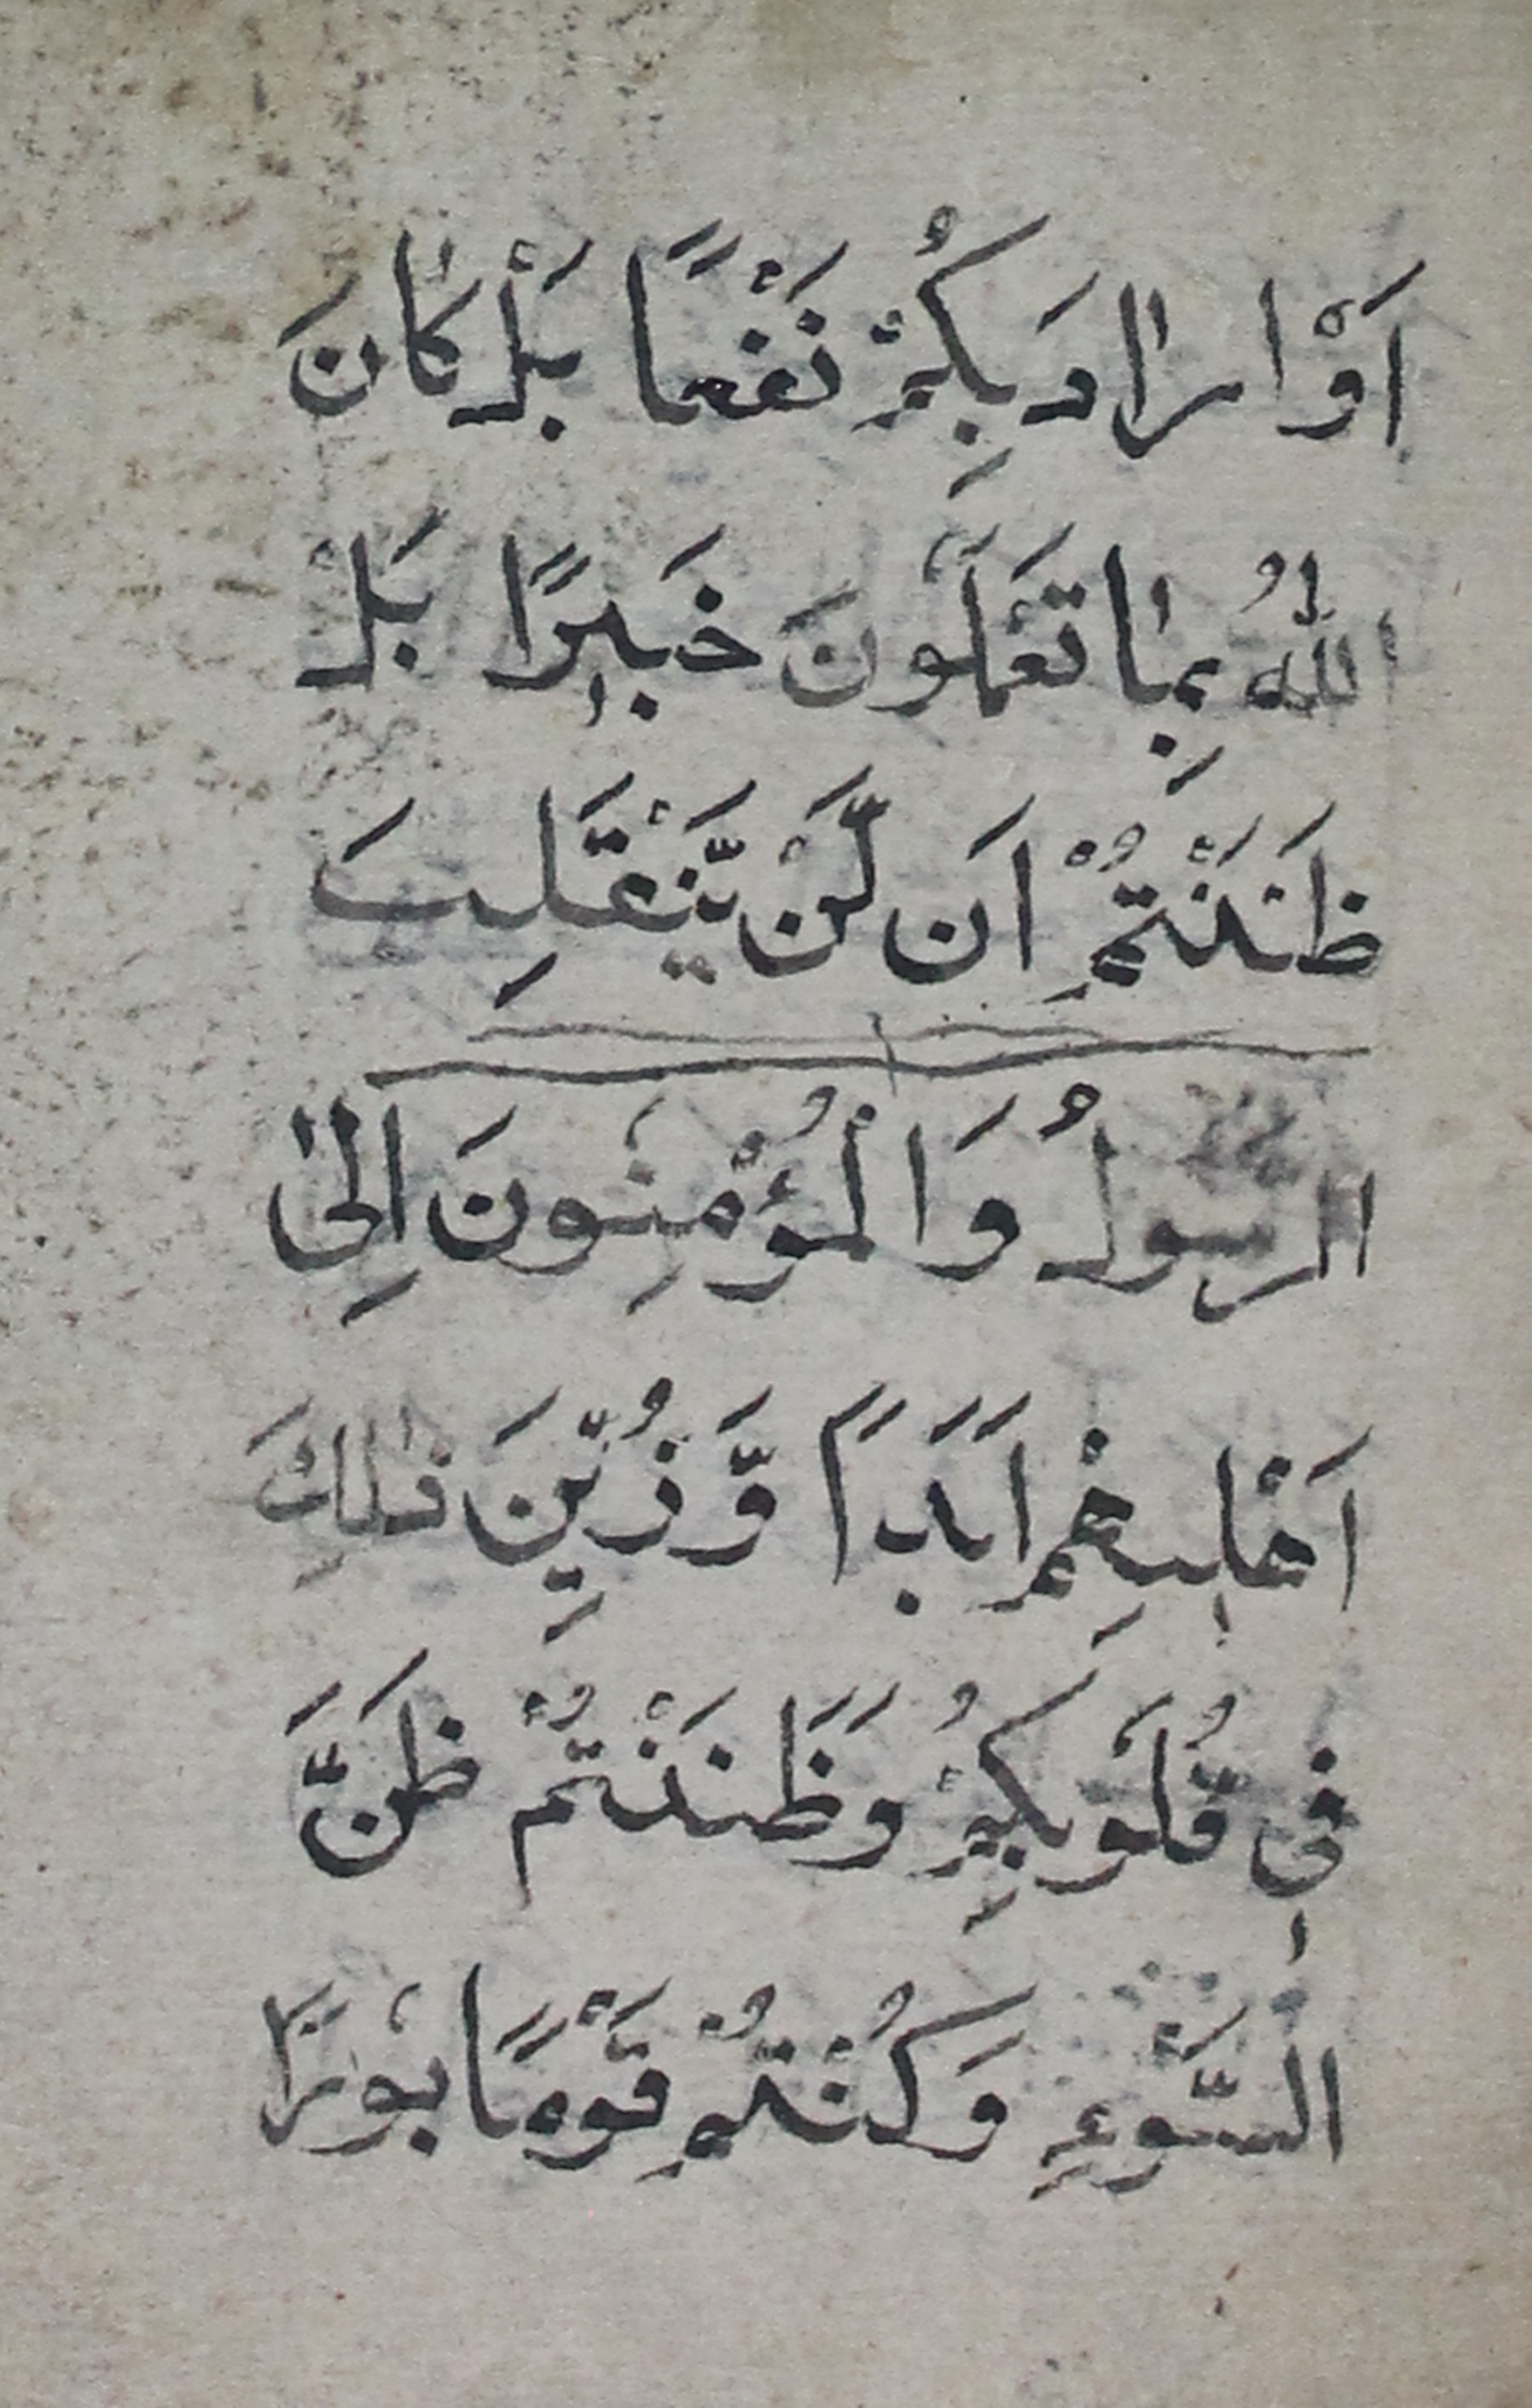 اَوْ اَرَادَ بِكُمْ نَفْعًا بَلْ كَانَ
اللّٰهُ بِمَا تَعْمَلُونَ خَبِيرًا بَلْ
ظَنَنْتُمْ اَن لَّنْ يَّنْقَلِبَ
الرسولُ وَالْمُؤْمِنُونَ اِلىٰ
اَهْلِيهِمْ اَبَدًا وَّزُيِّنَ ذٰلِكَ
فِى قُلُوبِكُمْ وَظَنَنْتُمْ ظَنَّ
السَّوْءِ وَكُنْتُمْ قَوْمًا بُورًا